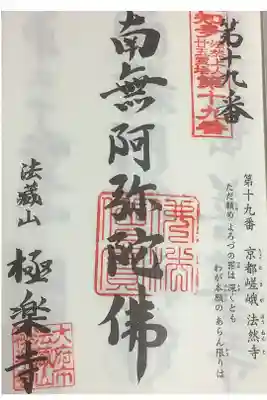 第十九番
第十九番 京都嵯峨 法然寺
ただ頼め よろづの罪は 深くとも
わが本願の あらん限りは
南無阿弥陀佛
法藏山 極楽寺